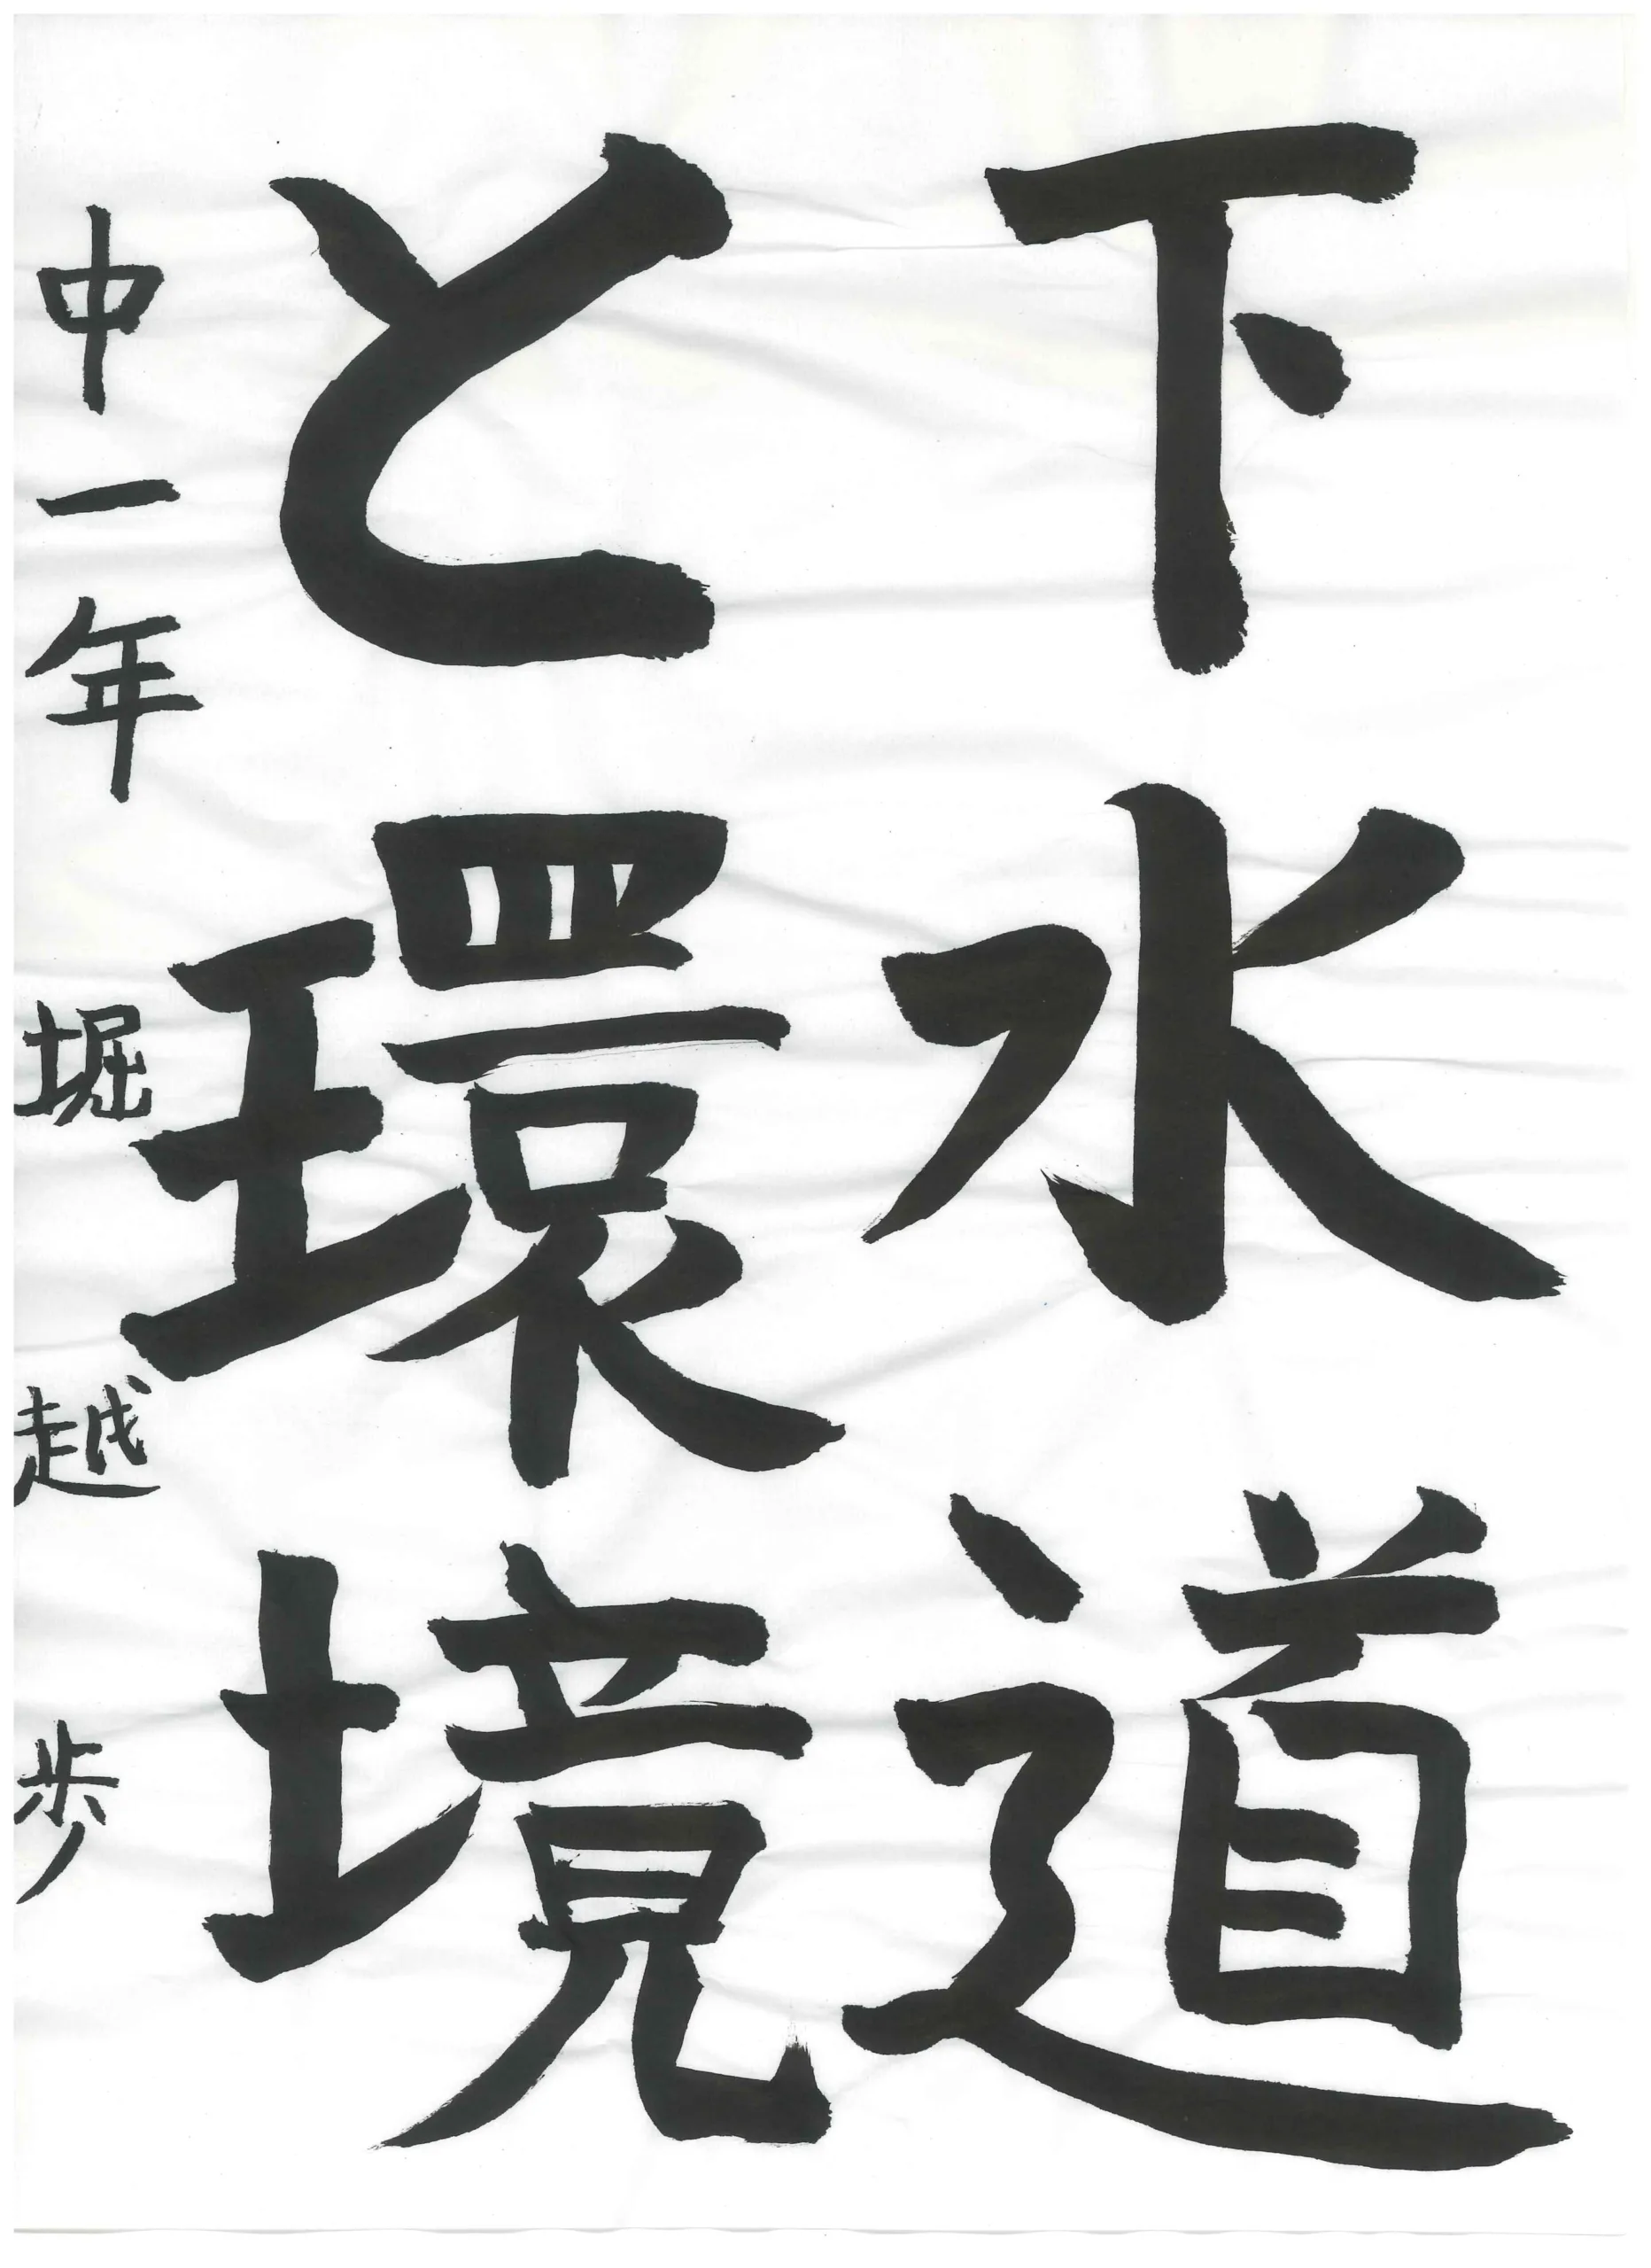 下水道
と環境
中一年 堀越歩